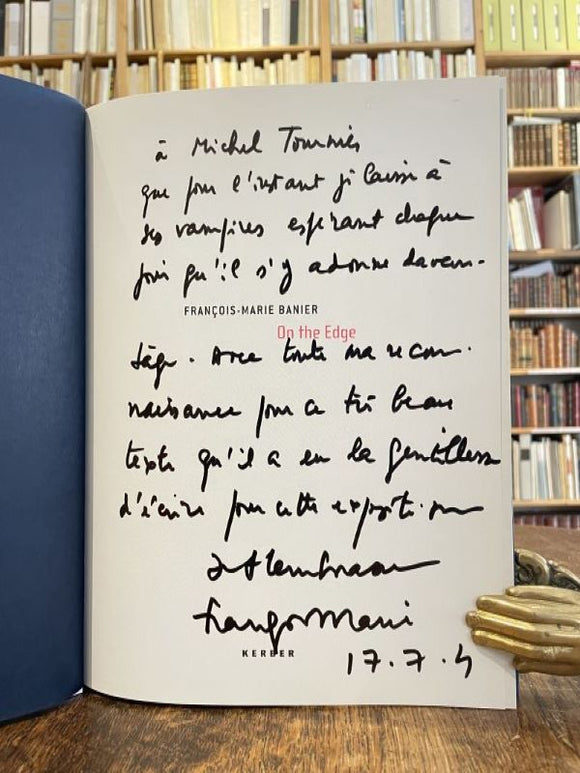 à Michel Tournier
que pour l'instant je laisse à
ses vampires espérant chaque
fois qu'il s'y adonne davan-
FRANÇOIS-MARIE BANIER
On the Edge
tage. Avec toute ma recon-
naissance pour ce très beau
texte qu'il a eu la gentillesse
d'écrire pour cette exposition
François Marie
KERBER
17.7.4